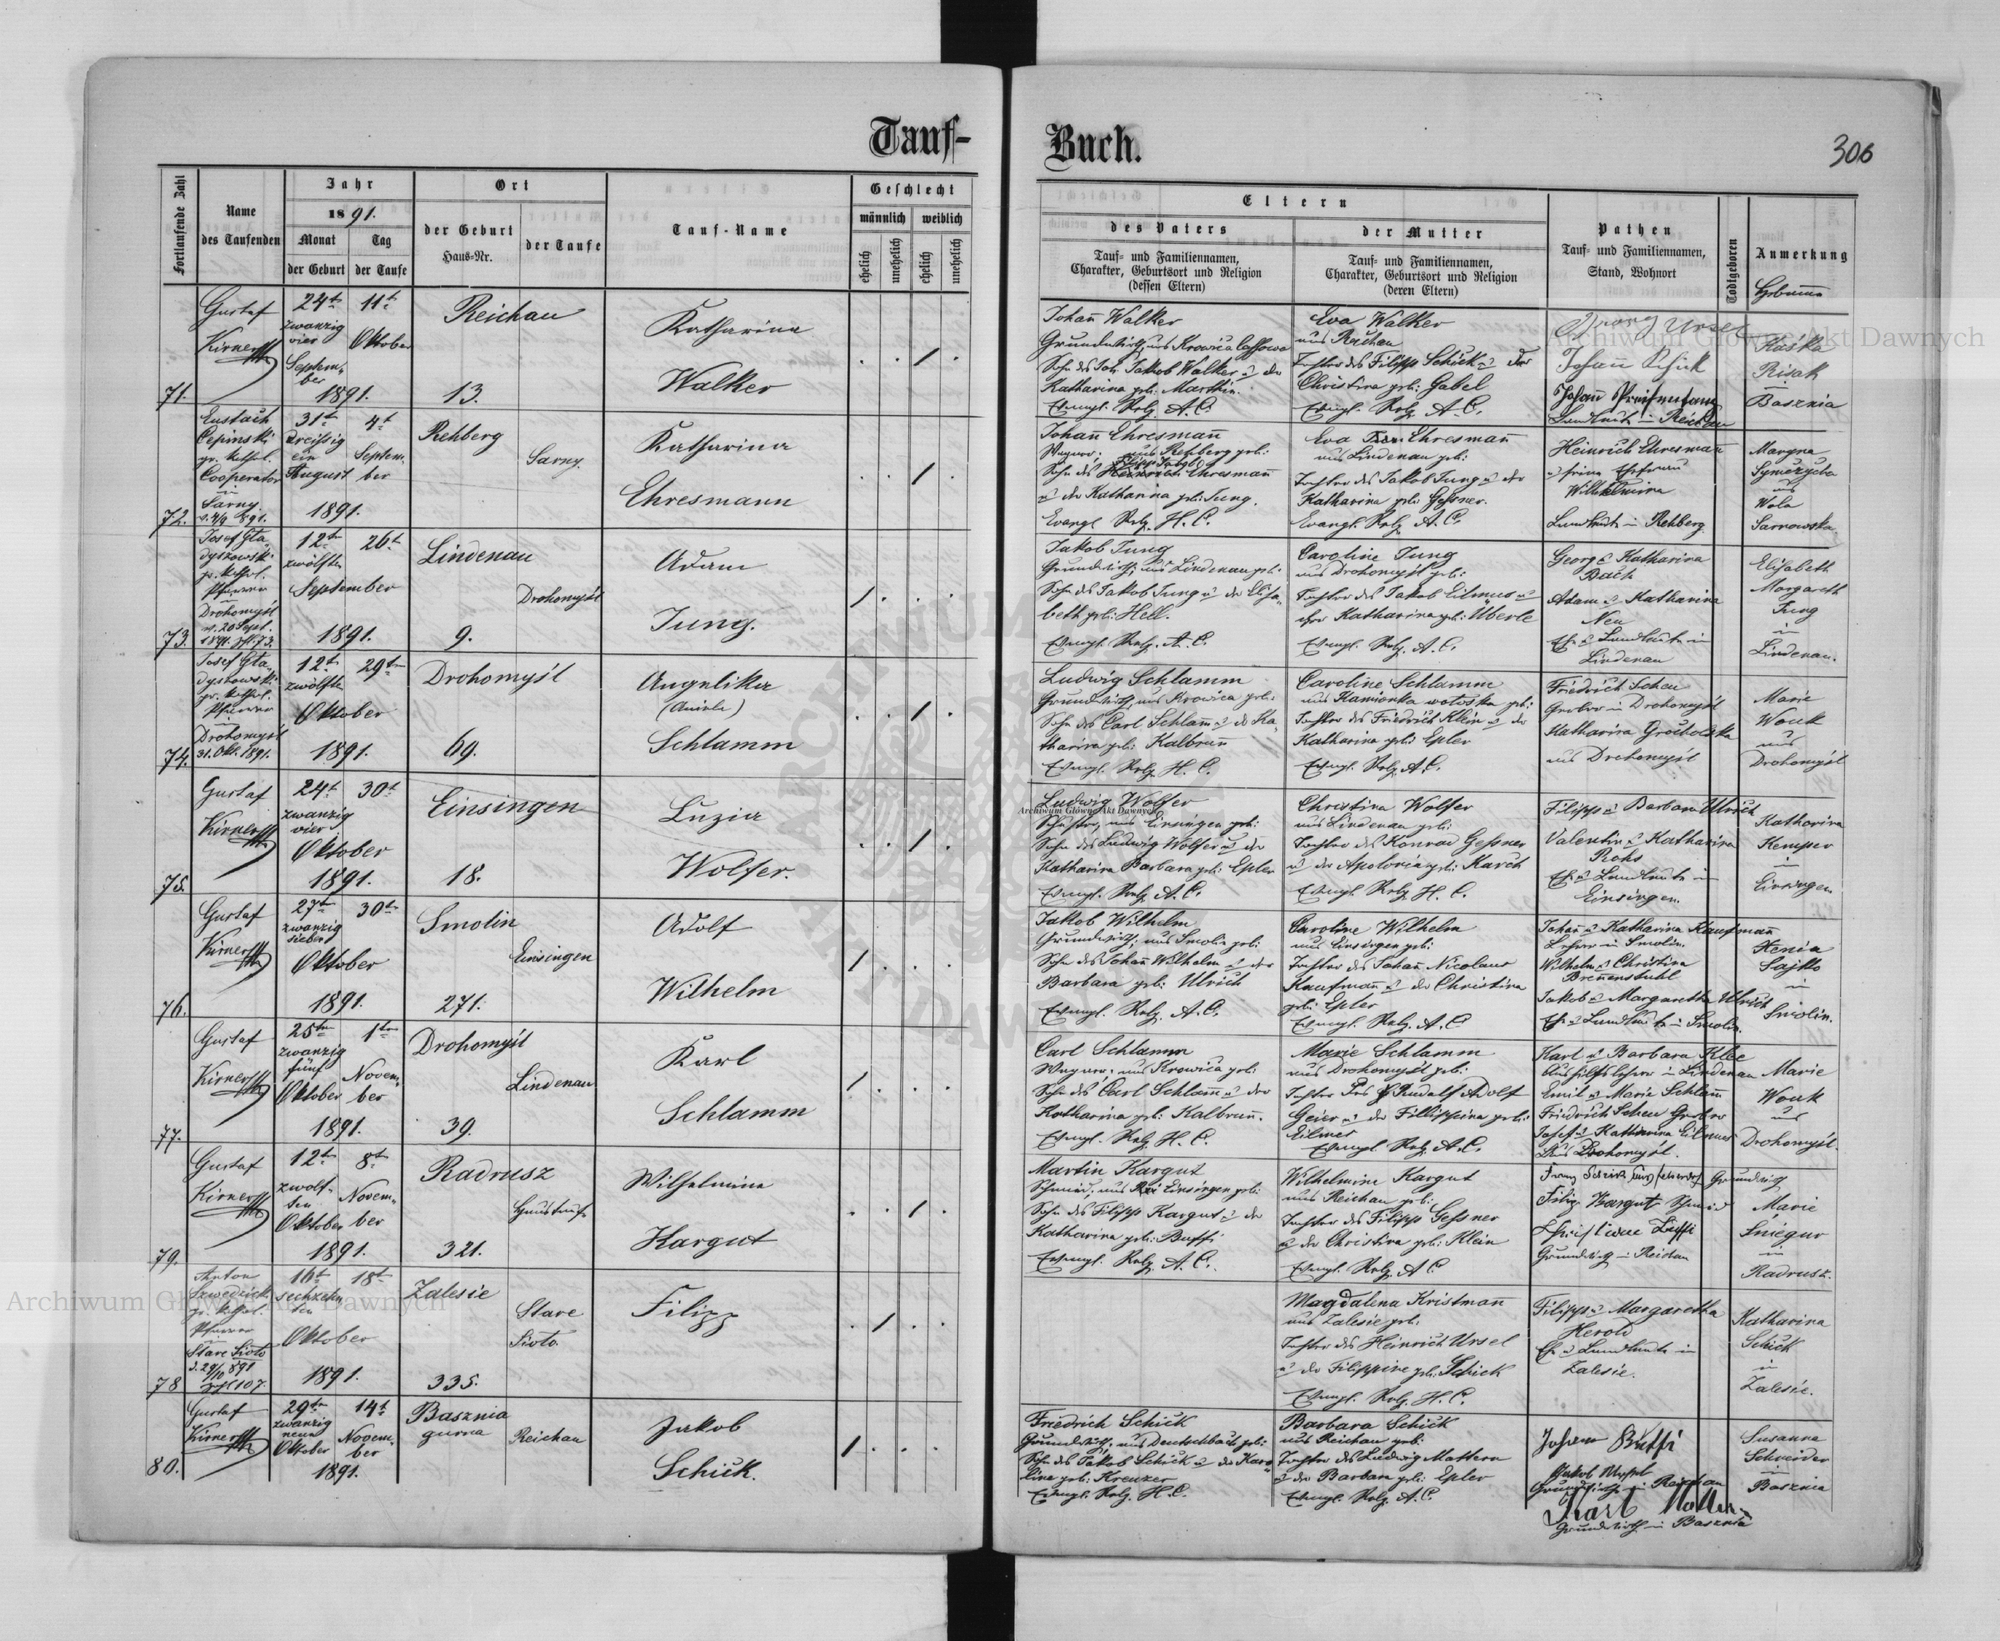 Tauf-
Buch.
306
Fortlaufende Zahl
Name
des Taufenden
Jahr
1891.
Monat
Tag
der Geburt
der Taufe
Ort
der Geburt
Haus-Nr.
der Taufe
Tauf-Name
Geschlecht
männlich
weiblich
ehelich
unehelich
ehelich
unehelich
Eltern
des Vaters
Tauf- und Familiennamen,
Charakter, Geburtsort und Religion
(dessen Eltern)
der Mutter
Tauf- und Familiennamen,
Charakter, Geburtsort und Religion
(deren Eltern)
Pathen
Tauf- und Familiennamen,
Stand, Wohnort
Todtgeboren
Anmerkung
Hebamme
71.
Gustaf
Kirner
24t
zwanzig
vier
Septem-
ber
11t
Oktober
1891.
Reichau
13.
Katharina
Walker
Johañ Walker
Sohn des Joh. Jakob Walker u der
Katharina geb: Matthis.
Evangl. Relg. A.C.
Eva Walker
aus Reichau
Tochter des Filipp Schick u der
Christina geb: Gabel
Evangl. Relg. A.C.
Georg Ursel
Johañ Schick
Landleute in Reichau
Kaśka
Risak
in
Basznia
72.
Eustach
Cepinski
gr. kathol.
Cooperator
in
Sarny.
31t
dreißig
ein
August
4t
Septem-
ber
1891.
Rehberg
Sarny.
Katharina
Ehresmann
Johañ Ehresmañ
Wagner, aus Rehberg geb:
u der Katharina geb: Jung.
Evangl. Relg. H.C.
Eva Ehresmañ
aus Lindenau geb:
Tochter des Jakob Jung u der
Katharina geb: Geßner.
Evangl. Relg. A.C.
Heinrich Ehresmañ
u seine Ehefrau
Wilhelmina
Landleute in Rehberg
aus
Wola
Sarnowska.
73.
Josef Gła-
dyszowski
gr. kathol.
Pfarrer
in
Drohomyśl
12t
zwölften
26t
September
1891.
Lindenau
9.
Drohomyśl
Adam
Jung.
Jakob Jung
Grundwirth, aus Lindenau geb:
Sohn des Jakob Jung u der Elisa-
beth geb: Hell.
Evangl. Relg. A.C.
Caroline Jung
aus Drohomyśl geb:
Tochter des Jakob Eilmes u
der Katharina geb: Überle
Evangl. Relg. A.C.
Georg u Katharina
Bach
Adam u Katharina
Neu
Eh. u Landleute in
Lindenau
Elisabeth
Margareth
Jung
in
Lindenau.
74.
Josef Gła-
dyszowski
gr. kathol.
Pfarrer
in
Drohomyśl
31. Okt. 1891.
12t
zwölften
29ten
Oktober
1891.
Drohomyśl
69.
Angelika
(Aniela)
Schlamm
Ludwig Schlamm
Grundwirth, aus Krowica geb:
Sohn des Carl Schlam u der Ka-
tharina geb: Kalbrun
Evangl. Relg. H.C.
Caroline Schlamm
aus Kamionka wołoska geb:
Tochter des Friedrich Klein u der
Katharina geb: Epler
Evangl. Relg. A.C.
Friedrich Scheu
Gerber in Drohomyśl
Katharina Grocholska
aus Drohomyśl
Marie
Wouk
aus
Drohomyśl
75.
Gustaf
Kirner
24t
zwanzig
vier
30t
Oktober
1891.
Einsingen
18.
Luzia
Wolfer.
Ludwig Wolfer
Schuster, aus Einsingen geb:
Sohn des Ludwig Wolfer u der
Katharina Barbara geb: Epler
Evangl. Relg. A.C.
Christina Wolfer
aus Lindenau geb:
Tochter des Konrad Geßner
u der Apolonia geb: Karch
Evangl. Relg. H.C.
Filipp u Barbara Ulrich
Valentin u Katharina
Rohs
Eh. u Landleute in
Einsingen.
Katharina
Kemper
in
Einsingen
76.
Gustaf
Kirner
27ten
zwanzig
sieben
30ten
Oktober
1891.
Smolin
271.
Einsingen
Adolf
Wilhelm
Jakob Wilhelm
Grundwirth, aus Smolin geb:
Sohn des Johañ Wilhelm u der
Barbara geb: Ulrich
Evangl. Relg. A.C.
Caroline Wilhelm
aus Einsingen geb:
Tochter des Johañ Nicolaus
Kaufmañ u der Christina
geb: Epler
Evangl. Relg. A.C.
Johañ u Katharina Kaufmañ
Lehrer in Smolin.
Wilhelm u Christina
Breñenstuhl
Jakob u Margaretha Ulrich
Eh. u Landleute in Smolin.
Xenia
Sajko
in
Smolin.
77.
Gustaf
Kirner
25ten
zwanzig
fünf
Oktober
1ten
Novem-
ber
1891.
Drohomyśl
39.
Lindenau
Karl
Schlamm
Carl Schlamm
Wagner, aus Krowica geb:
Sohn des Carl Schlam u der
Katharina geb: Kalbrun.
Evangl. Relg. H.C.
Marie Schlamm
aus Drohomyśl geb:
Tochter des Rudolf Adolf
Geier u der Fillippina geb:
Eilmes
Evangl. Relg. A.C.
Karl u Barbara Klee
Aushilfslehrer in Lindenau
Emil u Marie Schlam
Friedrich Scheu Gerber
Josef u Katharina Eilmes
aus Drohomyśl.
Marie
Wouk
aus
Drohomyśl.
79.
Gustaf
Kirner
12ten
zwölf-
ten
Oktober
8t
Novem-
ber
1891.
Radrusz
321.
Wilhelmina
Kargut
Martin Kargut
Schmied, aus Einsingen geb:
Sohn des Filipp Kargut u der
Katharina geb: Buffi
Evangl. Relg. A.C.
Wilhelmine Kargut
aus Reichau geb:
Tochter des Filipp Geßner
u der Christina geb: Klein
Evangl. Relg. A.C.
Filip Kargut Schmied
Grundwirth in Reichau
Marie
Sniegur
in
Radrusz.
78
Anton
gr. kathol.
Pfarrer
in
Stare Sioło
16t
sechzehn-
ten
18t
Oktober
1891.
Zalesie
335.
Stare
Sioło.
Filipp
Magdalena Kristmañ
aus Zalesie geb:
Tochter des Heinrich Ursel
u der Filippine geb: Schick
Evangl. Relg. H.C.
Filipp u Margaretha
Herold
Eh. u Landleute in
Zalesie.
Katharina
Schick
in
Zalesie.
80.
Gustaf
Kirner
29ten
zwanzig
neun
Oktober
14t
Novem-
ber
1891.
Basznia
gurna
Reichau
Jakob
Schick.
Friedrich Schick
Grundwirth, aus Deutschbach geb:
Sohn des Jakob Schick u der Karo-
line geb: Kreuzer
Evangl. Relg. H.C.
Barbara Schick
aus Reichau geb:
Tochter des Ludwig Mattern
u der Barbara geb: Epler
Evangl. Relg. A.C.
Johann Buffi
Grundwirthe in Reichau
Karl
Grundwirth in Basznia
Susanna
Schneider
in
Basznia
Archiwum Główne Akt Dawnych
Archiwum Główne Akt Dawnych
Archiwum Główne Akt Dawnych